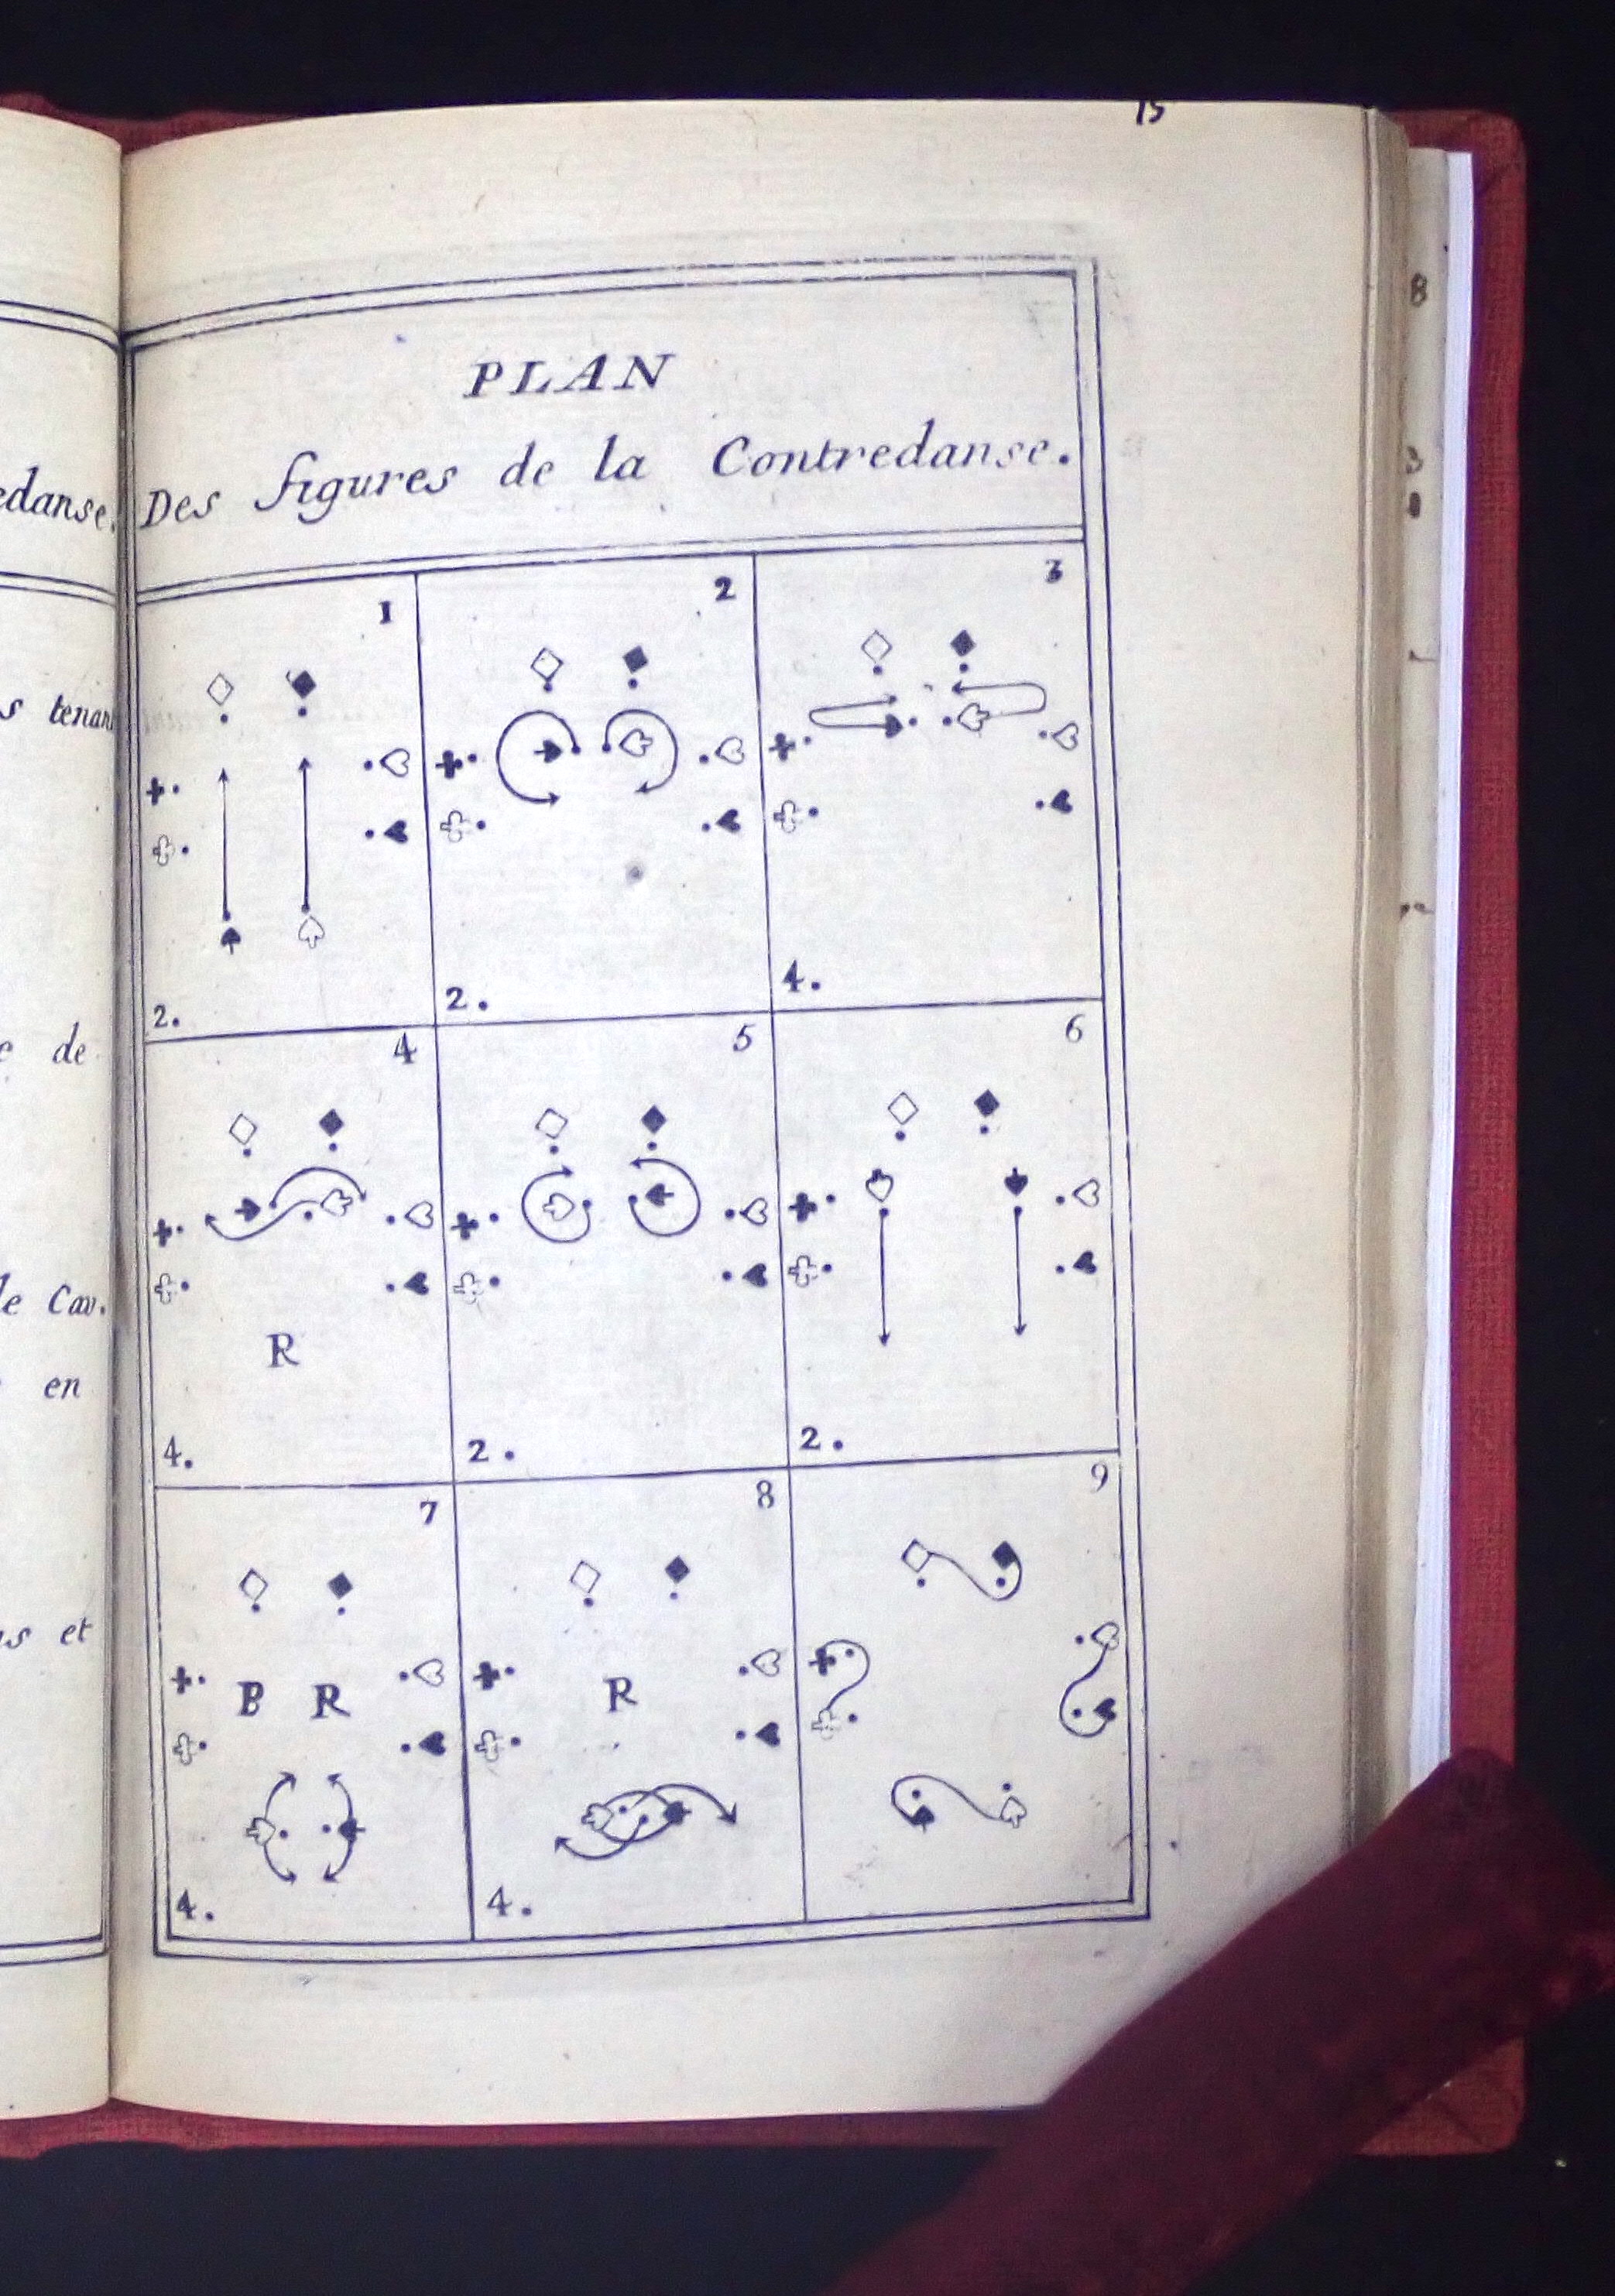 15
PLAN
Des figures de la Contredanse.
edanse.
s tenant
de
le Cav.
en
et
1
2
3
2.
2.
4.
4
5
6
R
4.
2.
2.
7
8
9
B R
R
4.
4.
8
3